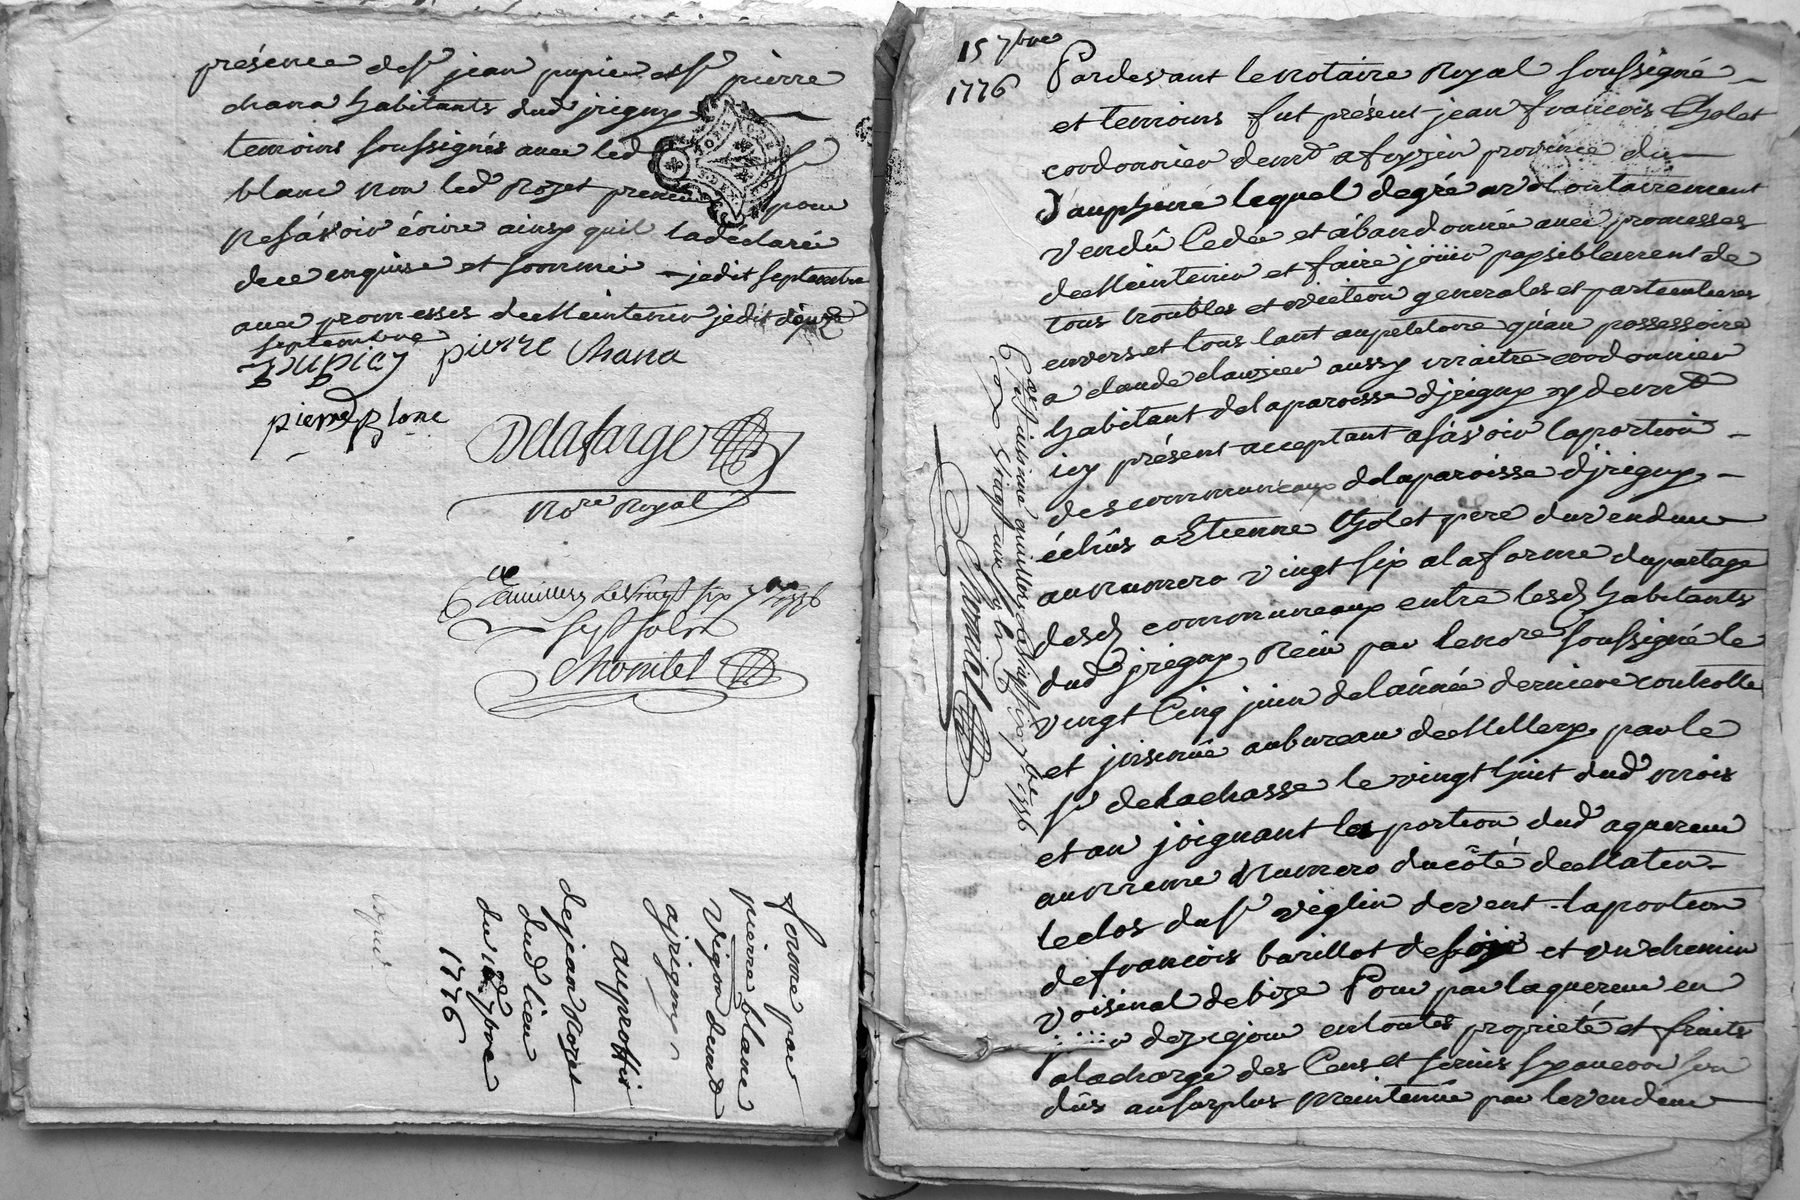 présence de sr jean pupier et sr pierre
chana habitants dud jrigny
temoins soussignés avec led
blanc non led Rozet preneur pour
ne sávoir écrire ainsy quil la déclaré
de ce enquis et sommé jedit septembre
avec promesses de Maintenir jedit douze
septembre
pupier pierre Chana
pierre blanc
Delafarge
nore Royal
a millery le vingt six 7bre 1776
sept sols
Chomitel
ferme par
pierre blanc
vigon demt
a jrigny
au proffit
de jean Rozet
dud lieu
du 12e 7bre
1776
15 7bre
1776
Pardevant le notaire Royal soussigné
et temoins fut présent jean francois Cholet
cordonnier demt a feyzin province du
Dauphiné lequel de gré a volontairement
vendû cedé et ábandonné avec promesses
de Maintenir et faire joüir paysiblement de
tous troubles et eviction generales et particulieres
envers et tous tant au petitoire qu'au possessoire
a claude clavier aussy maitre cordonnier
habitant de la paroisse d'jrigny y demt
icy présent acceptant a sávoir la portion
des communeaux de la paroisse d'jrigny
échûs a Etienne Cholet pere du vendeur
au numero vingt six a la forme du partage
desd communeaux entre lesd habitants
dud jrigny, Reçu par le nore soussigné le
vingt cinq juin de l'année derniere controllé
et jnsinué au bureau de Millery par le
sr de Lachasse le vingt huit dud mois
et an joignant la portion dud aquereur
au meme Numero du côté de Matin
le clos du sr véglin de vent la portion
de francois barillot de soir et un chemin
voisinal de bize Pour par l'aquereur en
dez ce jour en toutes proprieté et fruits
a la charge des Cens et servis sy aucun son
dûs au surplus maintenüe par le vendeur
Chomitel